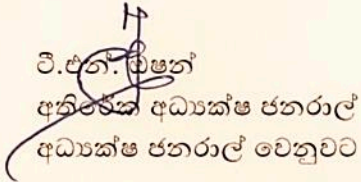 ටී.එන්. ඕෂන්
අතිරේක අධ්‍යක්ෂ ජනරාල්
අධ්‍යක්ෂ ජනරාල් වෙනුවට